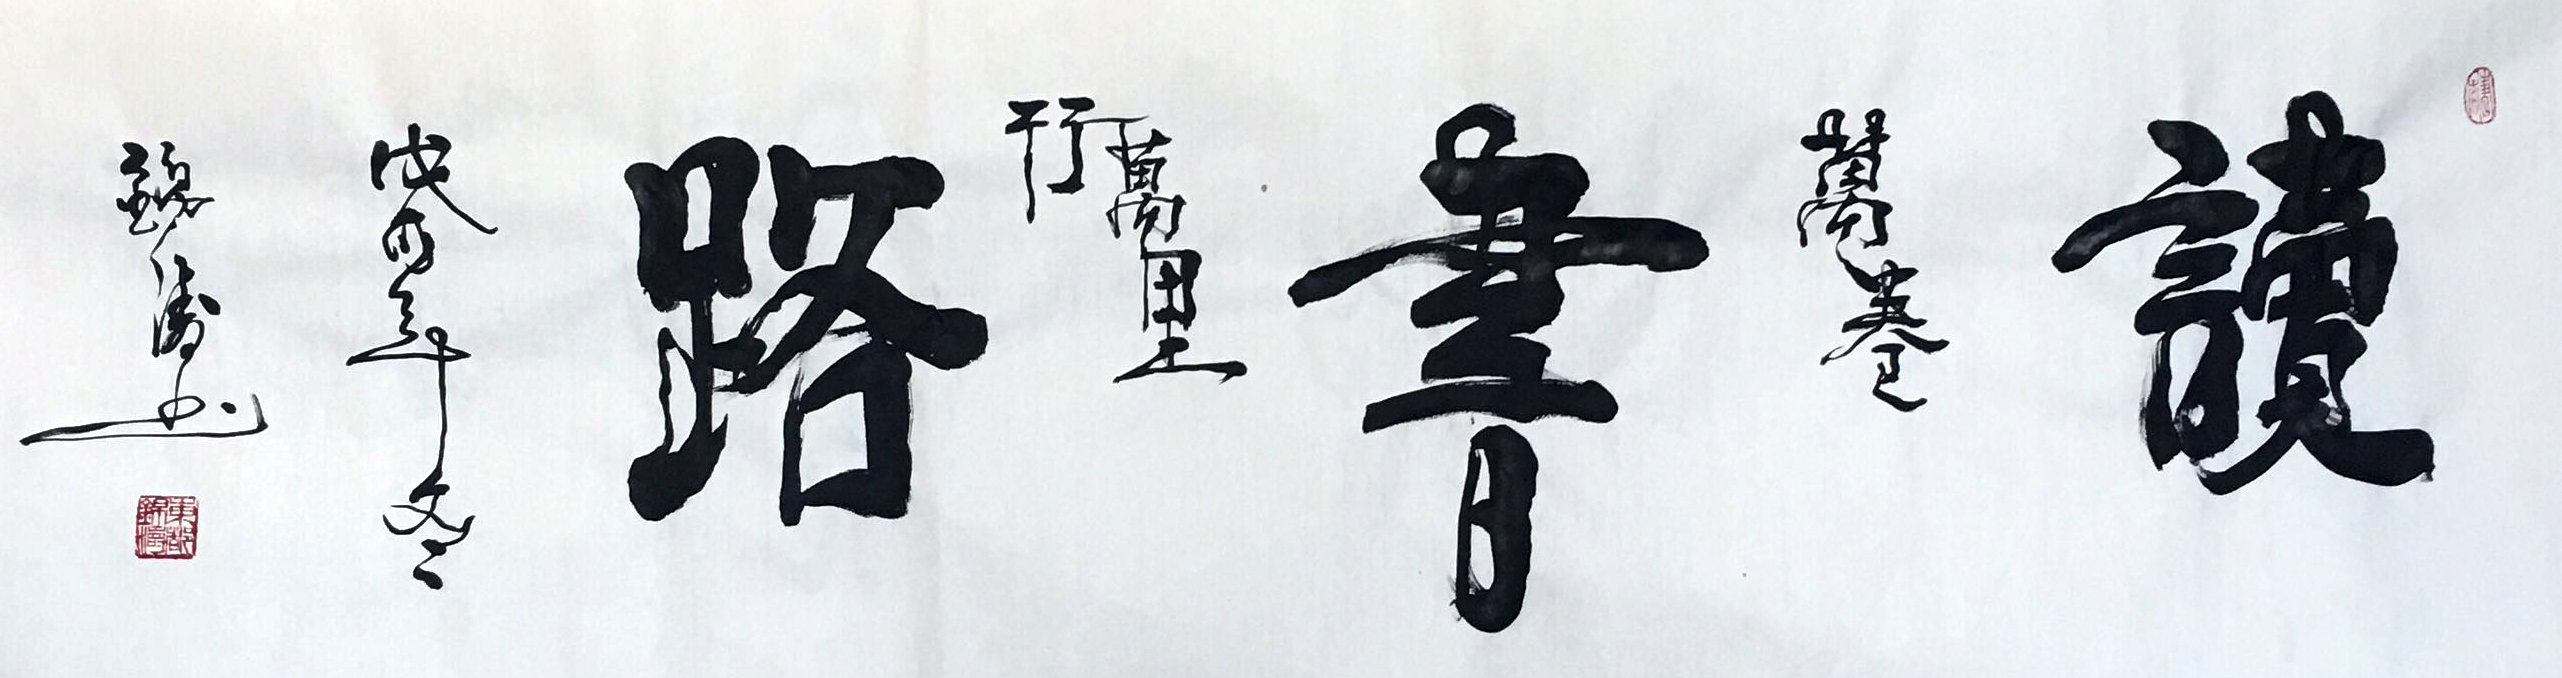 讀
萬卷
書
行
萬里
路
戊戌年冬
錦濤書